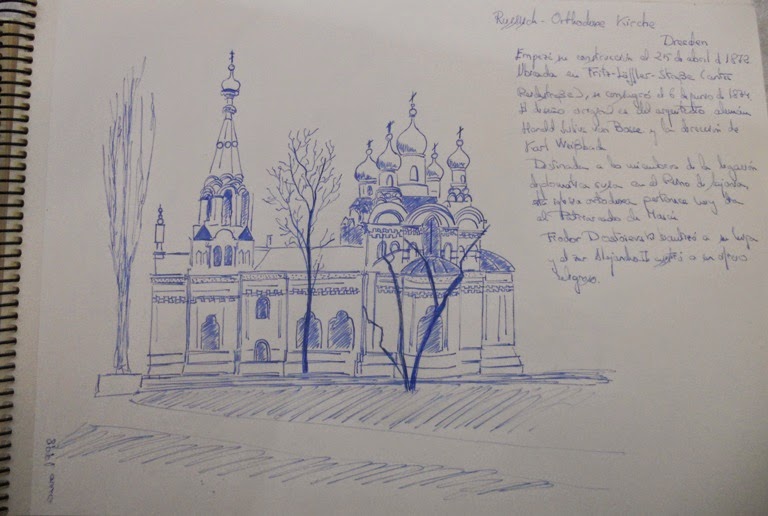 Russisch - Orthodoxe Kirche
Dresden
Empezó su construcción el 25 de abril d 1872
Ubicada en Fritz-Löffler-Straße (antes
), se consagró el 6 de junio d 1874.
El diseño original es del arquitecto alemán
Harald Julius von Bosse y la dirección de
Karl Weißbach
Destinada a los miembros de la legación
diplomática rusa en el Reino de Sajonia,
esta iglesia ortodoxa pertenece hoy día
al Patriarcado de Moscú
Fiodor Dostoievski bautizó a su hija
y el zar Alejandro II a un oficio
religioso.